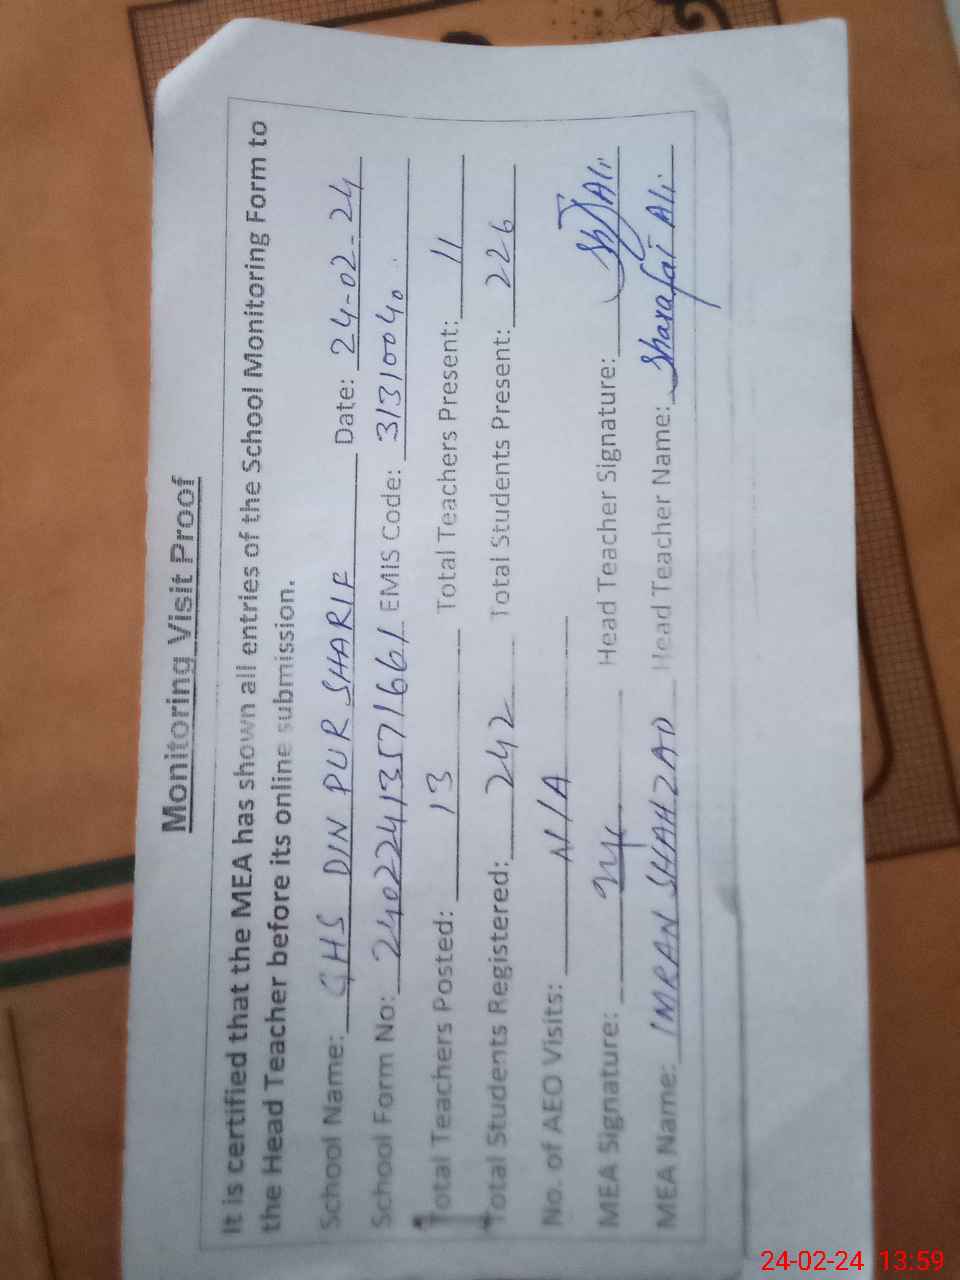 Monitoring Visit Proof
It is certified that the MEA has shown all entries of the School Monitoring Form to
the Head Teacher before its online submission.
School Name: GHS DIN PUR SHARIF Date: 24-02-24
School Form No: 24022413571661 EMIS Code: 31310040
Total Teachers Posted: 13 Total Teachers Present: 11
Total Students Registered: 242 Total Students Present: 226
No. of AEO Visits: N/A
MEA Signature: Head Teacher Signature:
MEA Name: IMRAN SHAHZAD Head Teacher Name: Sharafat Ali
24-02-24 13:59